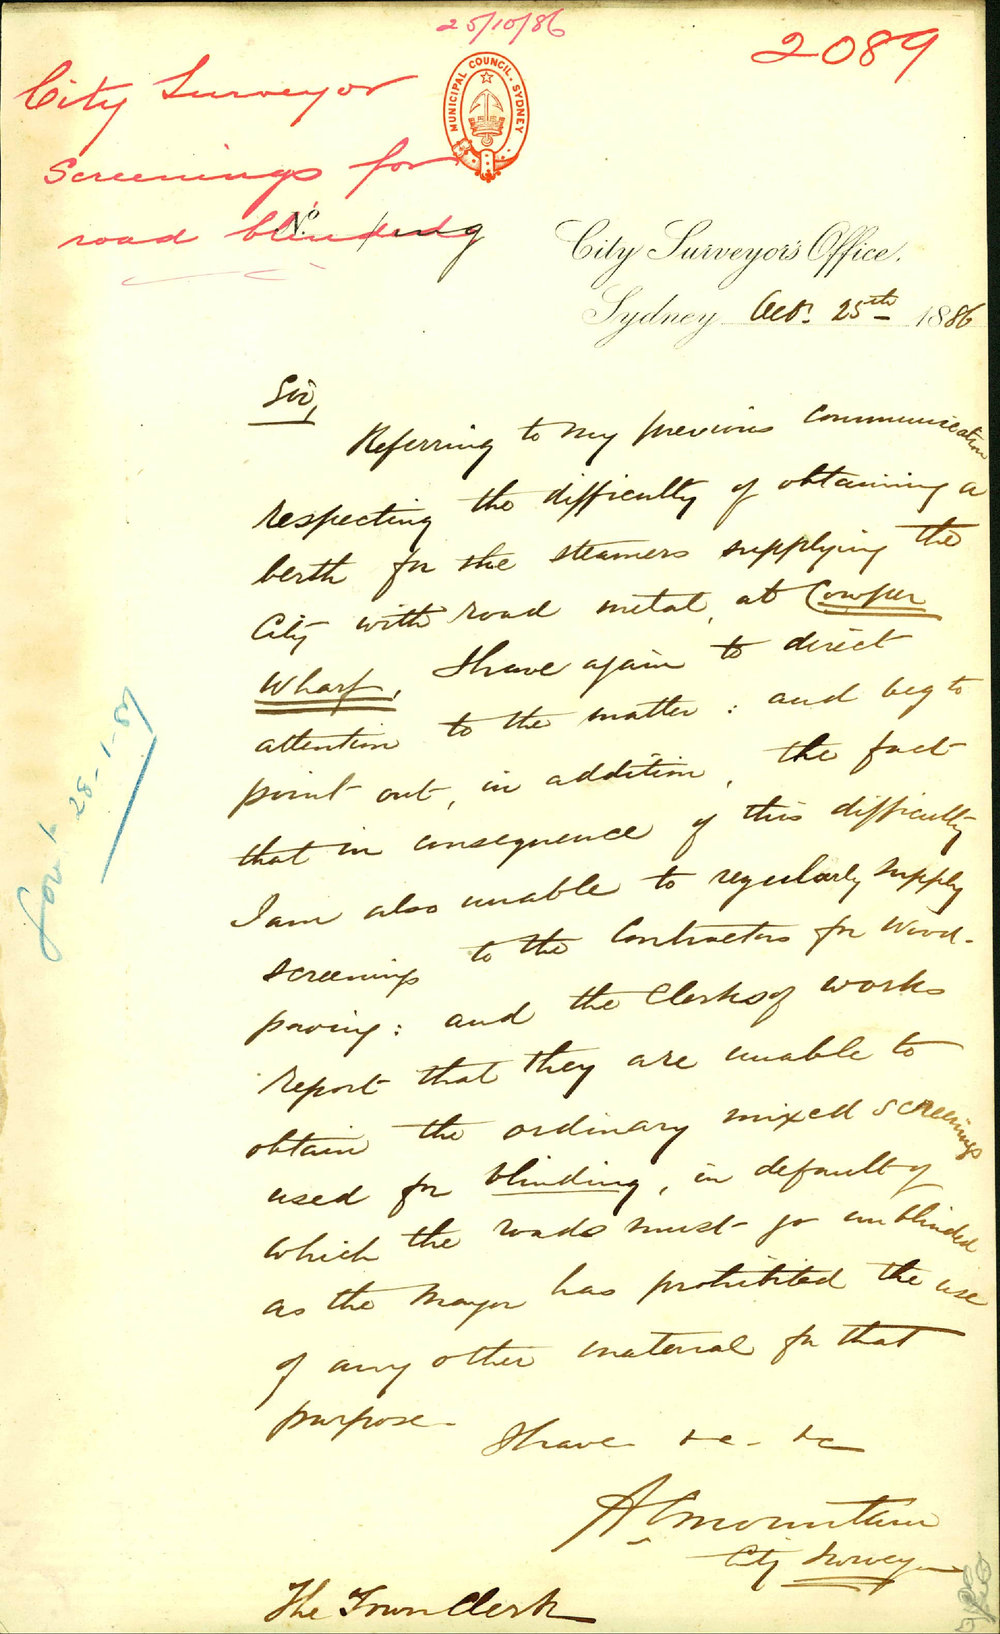 25/10/86
2089
City Surveyor
Screenings for
road blinding
MUNICIPAL COUNCIL. SYDNEY
No.
City Surveyor's Office.
Sydney Octr. 25th 1886
Sir,
Referring to my previous communication
respecting the difficulty of obtaining a
berth for the steamers supplying the
City with road metal, at Cowper
Wharf, I have again to direct
attention to the matter: and beg to
point out, in addition, the fact
that in consequence of this difficulty
I am also unable to regularly supply
screenings to the Contractors for Wood-
paving: and the Clerks of works
report that they are unable to
obtain the ordinary mixed screenings
used for blinding, in default of
which the roads must go unblinded
as the Mayor has prohibited the use
of any other material for that
purpose.
I have &c. &c
A C Mountain
City Surveyor
The Town Clerk
28-1-87